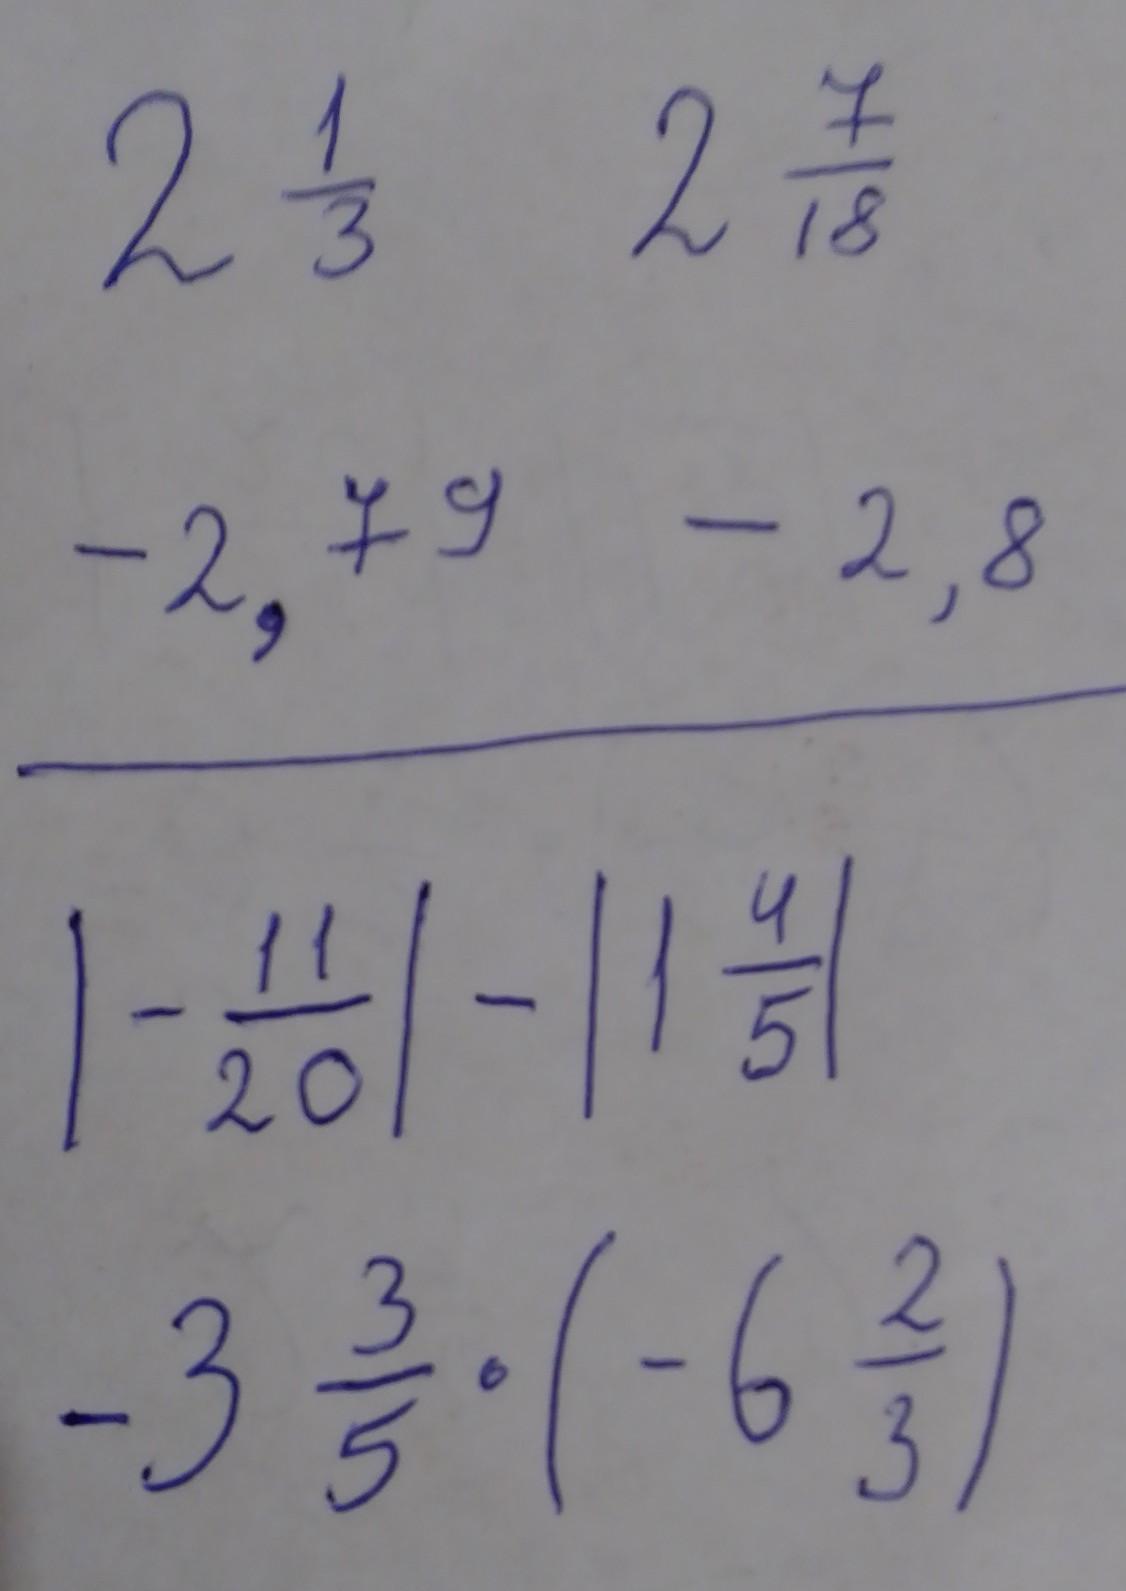 2 1/3 2 7/18
-2,79 -2,8
|-11/20| - |1 4/5|
-3 3/5 · (-6 2/3)